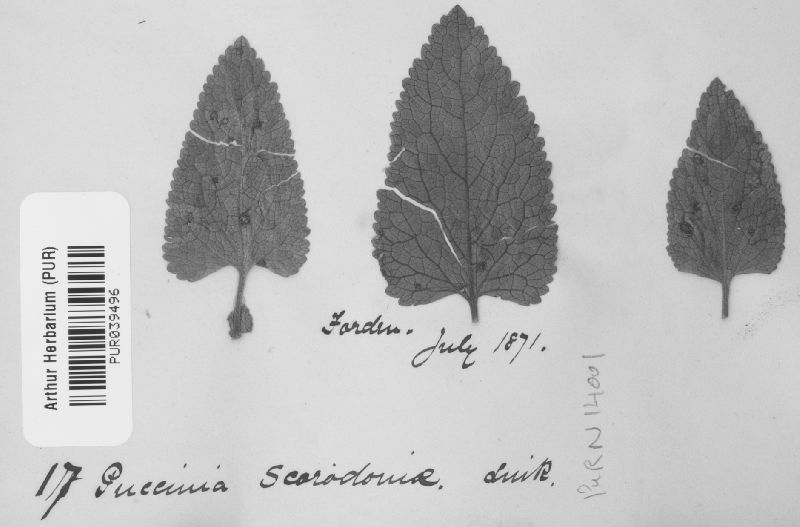 Arthur Herbarium (PUR)
PUR039496
Forden.
July 1871.
PURN14001
17 Puccinia Scorodoniæ. Link.